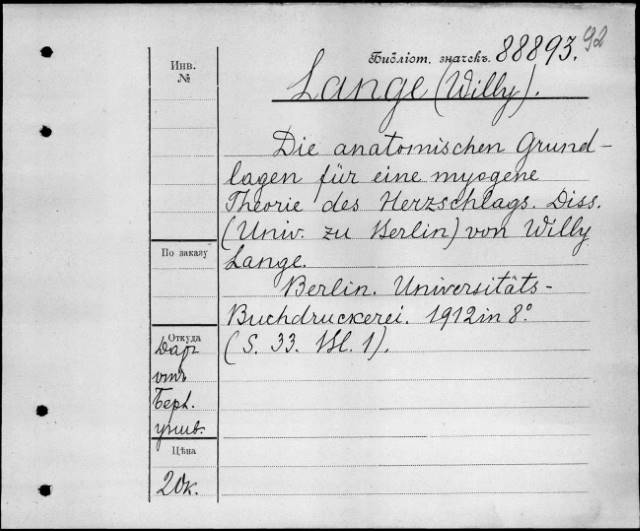 92
Библіот. значекъ. 88893.
Инв.
№
Lange (Willy).
Die anatomischen Grund-
lagen für eine myogene
Theorie des Herzschlags. Diss.
(Univ. zu Berlin) von Willy
Lange.
Berlin. Universitäts-
Buchdruckerei. 1912 in 8º
(S. 33. Bl. 1).
По заказу
Откуда
Даръ
отъ
Берл.
унив.
Цѣна
20к.